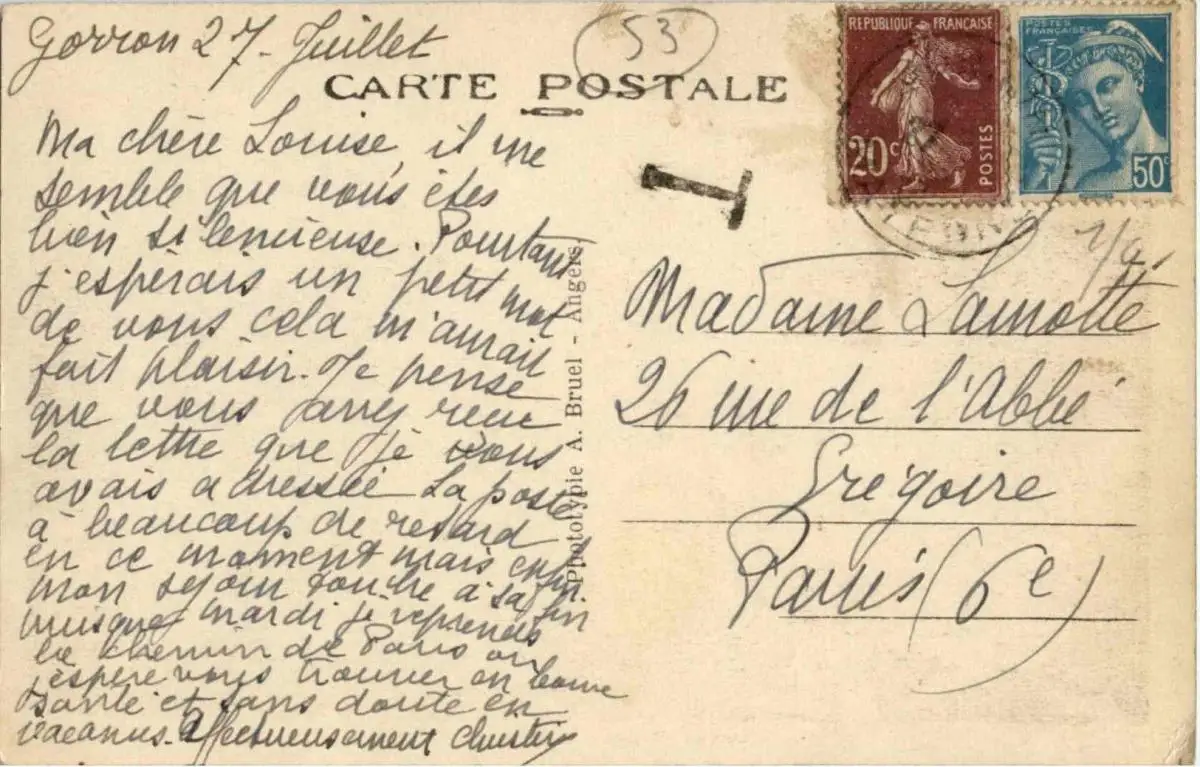 Gorron 27 - Juillet
53
CARTE POSTALE
REPUBLIQUE FRANÇAISE
20c
POSTES
POSTES
FRANÇAISES
50c
T
Ma chère Louise, il me
semble que vous êtes
bien silencieuse. Pourtant
j'espérais un petit mot
de vous cela m'aurait
fait plaisir. Je pense
que vous avez reçu
la lettre que je vous
avais adressée La poste
à beaucoup de retard
en ce moment mais enfin
mon sejour touche à sa fin
puisque mardi je reprends
le chemin de Paris ou
j'espère vous trouver en bonne
santé et sans doute en
vacances. Affectueusement
Phototypie A. Bruel - Angers
Madame Lamotte
26 rue de l'Abbé
Grégoire
Paris (6e)